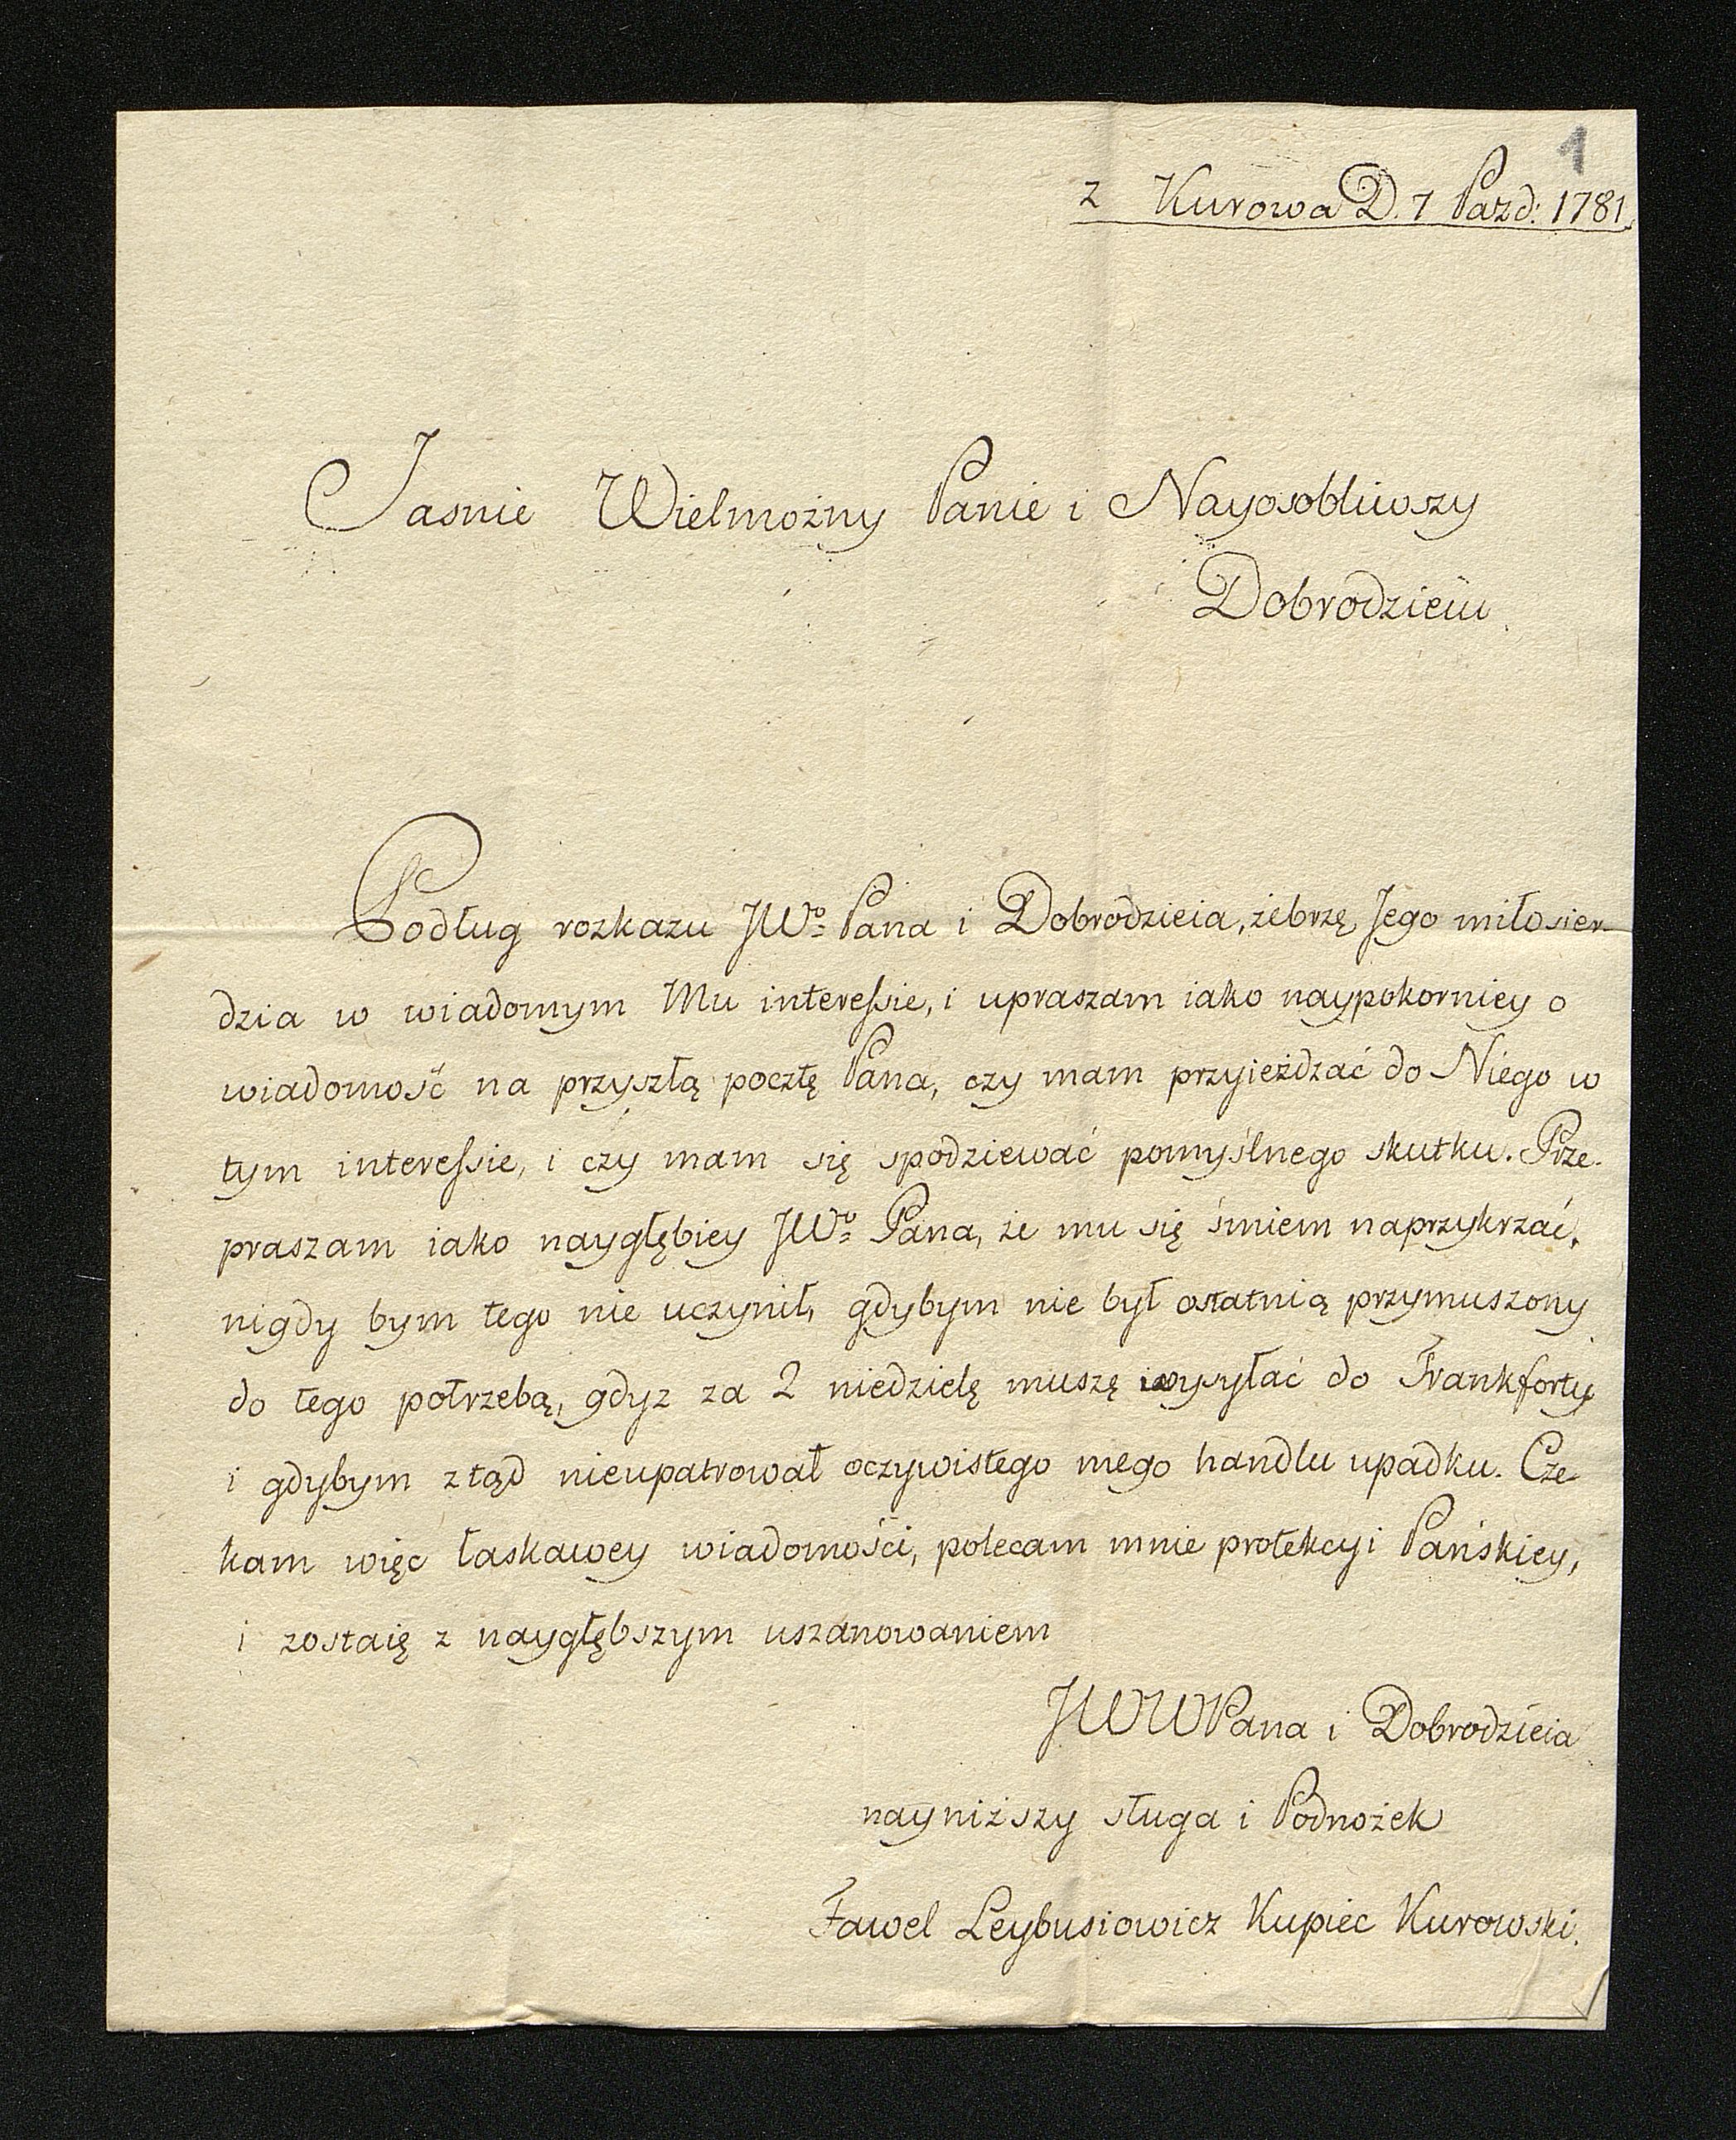 1
z Kurowa D. 7 Pazd: 1781.
Jasnie Wielmożny Panie i Nayosobliwszy
Dobrodzieiu
Podług rozkazu JWo: Pana i Dobrodzieia, żebrzę Jego miłosier-
dzia w wiadomym Mu interessie, i upraszam iako naypokorniey o
wiadomość na przyszłą pocztę Pana, czy mam przyieżdzać do Niego w
tym interessie, i czy mam się spodziewać pomyślnego skutku. Prze-
praszam iako naygłębiey JWo: Pana, że mu się śmiem naprzykrzać,
nigdy bym tego nie uczynił, gdybym nie był ostatnią przymuszony
do tego potrzebą, gdyz za 2 niedzielę muszę wysyłać do Frankforty
i gdybym ztąd nieupatrował oczywistego mego handlu upadku. Cze-
kam więc łaskawey wiadomości, polecam mnie protekcyi Pańskiey,
i zostaię z naygłębszym uszanowaniem
JWWPana i Dobrodzieia
nayniższy sługa i Podnożek
Fawel Leybusiowicz Kupiec Kurowski.